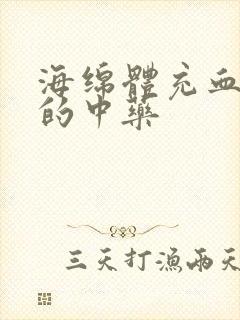 海绵體充血
的中藥
三天打漁兩天